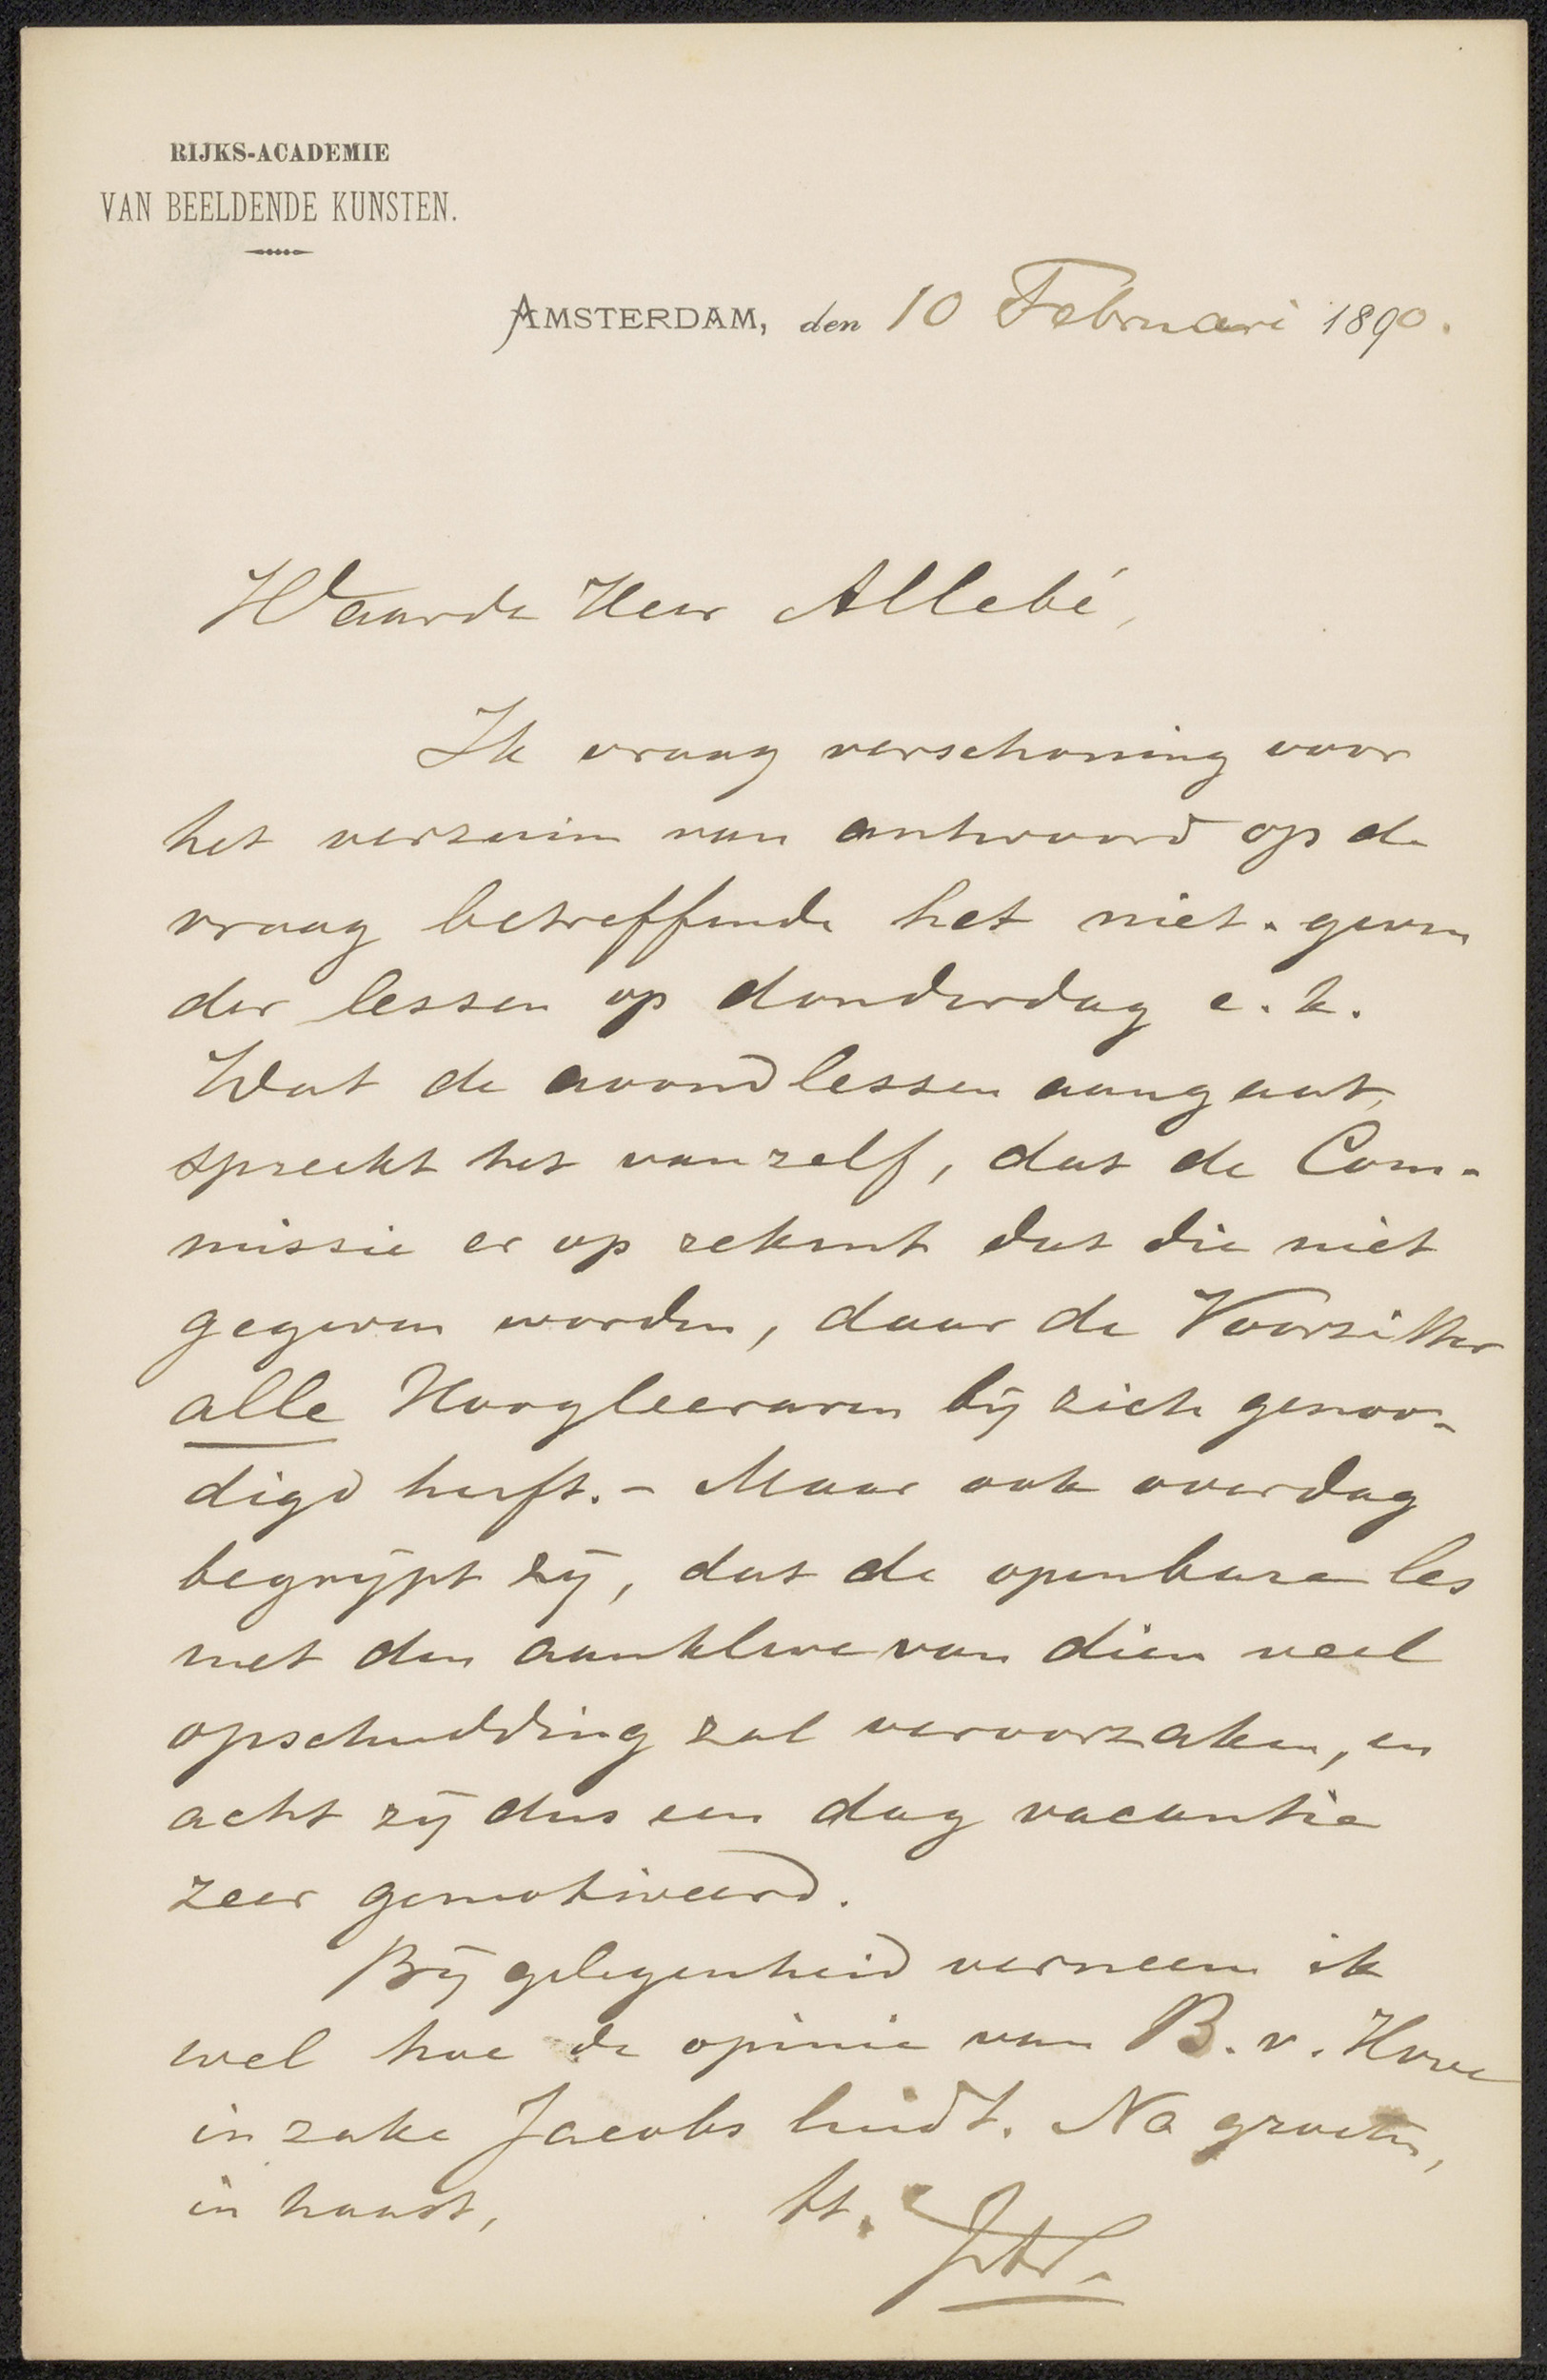 RIJKS-ACADEMIE
VAN BEELDENDE KUNSTEN.
AMSTERDAM, den 10 Februari 1890.
Waarde Heer Allebé,
Ik vraag verschooning voor
het verzuim van antwoord op de
vraag betreffende het niet-geven
der lessen op donderdag e.k.
Wat de avondlessen aangaat,
spreekt het vanzelf, dat de Com-
missie er op rekent dat die niet
gegeven worden, daar de Voorzitter
alle Hoogleeraren bij zich genoo-
digd heeft. - Maar ook overdag
begrijpt zij, dat de openbare les
met den aankleve van dien veel
opschudding zal veroorzaken, en
acht zij dus een dag vacantie
zeer gemotiveerd.
Bij gelegenheid verneem ik
wel hoe de opinie van B. v. Hove
in zake Jacobs luidt. Na groeten,
in haast,
tt.